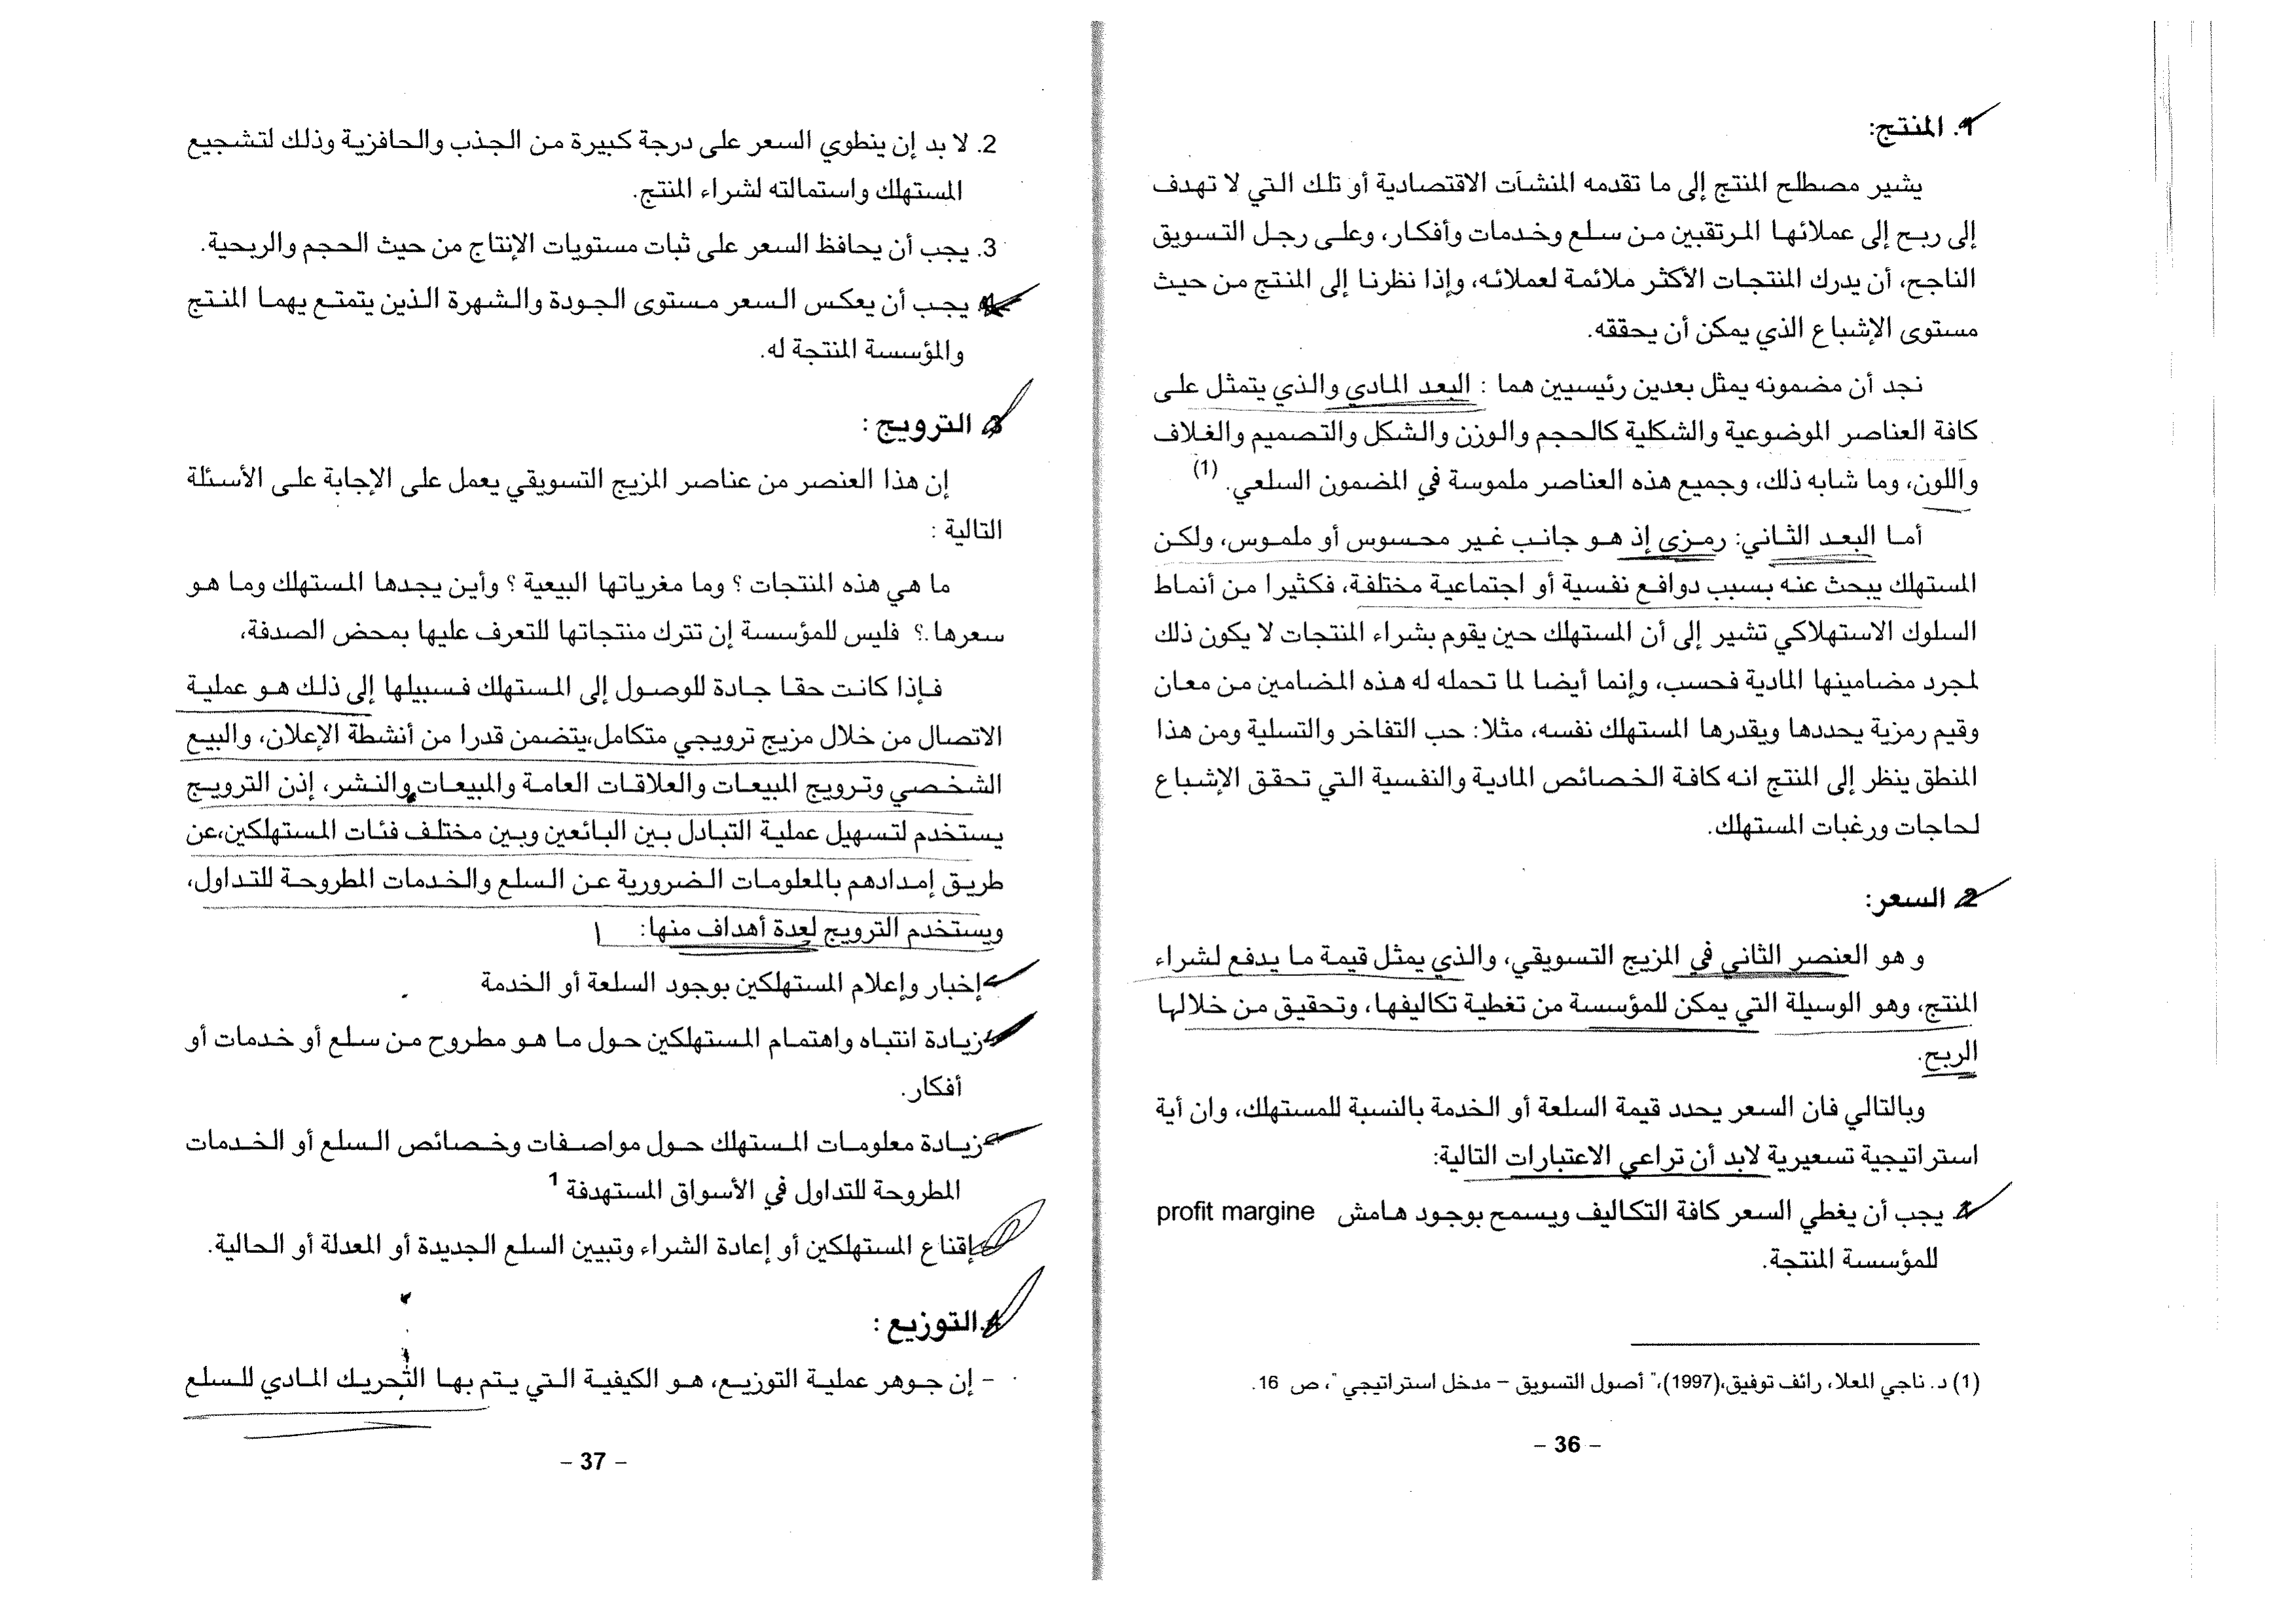 1. المنتج:
يشير مصطلح المنتج إلى ما تقدمه المنشآت الاقتصادية أو تلك التي لا تهدف
إلى ربح إلى عملائها المرتقبين من سلع وخدمات وأفكار، وعلى رجل التسويق
الناجح، أن يدرك المنتجات الأكثر ملائمة لعملائه، وإذا نظرنا إلى المنتج من حيث
مستوى الإشباع الذي يمكن أن يحققه.
نجد أن مضمونه يمثل بعدين رئيسيين هما : البعد المادي والذي يتمثل على
كافة العناصر الموضوعية والشكلية كالحجم والوزن والشكل والتصميم والغلاف
واللون، وما شابه ذلك، وجميع هذه العناصر ملموسة في المضمون السلعي. (1)
أما البعد الثاني: رمزي إذ هو جانب غير محسوس أو ملموس، ولكن
المستهلك يبحث عنه بسبب دوافع نفسية أو اجتماعية مختلفة، فكثيرا من أنماط
السلوك الاستهلاكي تشير إلى أن المستهلك حين يقوم بشراء المنتجات لا يكون ذلك
لمجرد مضامينها المادية فحسب، وإنما أيضا لما تحمله له هذه المضامين من معان
وقيم رمزية يحددها ويقدرها المستهلك نفسه، مثلا: حب التفاخر والتسلية ومن هذا
المنطق ينظر إلى المنتج انه كافة الخصائص المادية والنفسية التي تحقق الإشباع
لحاجات ورغبات المستهلك.
2. السعر:
و هو العنصر الثاني في المزيج التسويقي، والذي يمثل قيمة ما يدفع لشراء
المنتج، وهو الوسيلة التي يمكن للمؤسسة من تغطية تكاليفها، وتحقيق من خلالها
الربح.
وبالتالي فان السعر يحدد قيمة السلعة أو الخدمة بالنسبة للمستهلك، وان أية
استراتيجية تسعيرية لابد أن تراعي الاعتبارات التالية:
1. يجب أن يغطي السعر كافة التكاليف ويسمح بوجود هامش profit margine
للمؤسسة المنتجة.
(1) د. ناجي المعلا، رائف توفيق،(1997)،" أصول التسويق – مدخل استراتيجي "، ص 16.
– 36 –
2. لا بد إن ينطوي السعر على درجة كبيرة من الجذب والحافزية وذلك لتشجيع
المستهلك واستمالته لشراء المنتج.
3. يجب أن يحافظ السعر على ثبات مستويات الإنتاج من حيث الحجم والربحية.
4. يجب أن يعكس السعر مستوى الجودة والشهرة الذين يتمتع يهما المنتج
والمؤسسة المنتجة له.
3. الترويج :
إن هذا العنصر من عناصر المزيج التسويقي يعمل على الإجابة على الأسئلة
التالية :
ما هي هذه المنتجات ؟ وما مغرياتها البيعية ؟ وأين يجدها المستهلك وما هو
سعرها.؟ فليس للمؤسسة إن تترك منتجاتها للتعرف عليها بمحض الصدفة،
فإذا كانت حقا جادة للوصول إلى المستهلك فسبيلها إلى ذلك هو عملية
الاتصال من خلال مزيج ترويجي متكامل،يتضمن قدرا من أنشطة الإعلان، والبيع
الشخصي وترويج المبيعات والعلاقات العامة والمبيعات والنشر، إذن الترويج
يستخدم لتسهيل عملية التبادل بين البائعين وبين مختلف فئات المستهلكين،عن
طريق إمدادهم بالمعلومات الضرورية عن السلع والخدمات المطروحة للتداول،
ويستخدم الترويج لعدة أهداف منها:
إخبار وإعلام المستهلكين بوجود السلعة أو الخدمة
زيادة انتباه واهتمام المستهلكين حول ما هو مطروح من سلع أو خدمات أو
أفكار.
زيادة معلومات المستهلك حول مواصفات وخصائص السلع أو الخدمات
المطروحة للتداول في الأسواق المستهدفة 1
إقناع المستهلكين أو إعادة الشراء وتبيين السلع الجديدة أو المعدلة أو الحالية.
4.التوزيع :
– إن جوهر عملية التوزيع، هو الكيفية التي يتم بها التحريك المادي للسلع
– 37 –